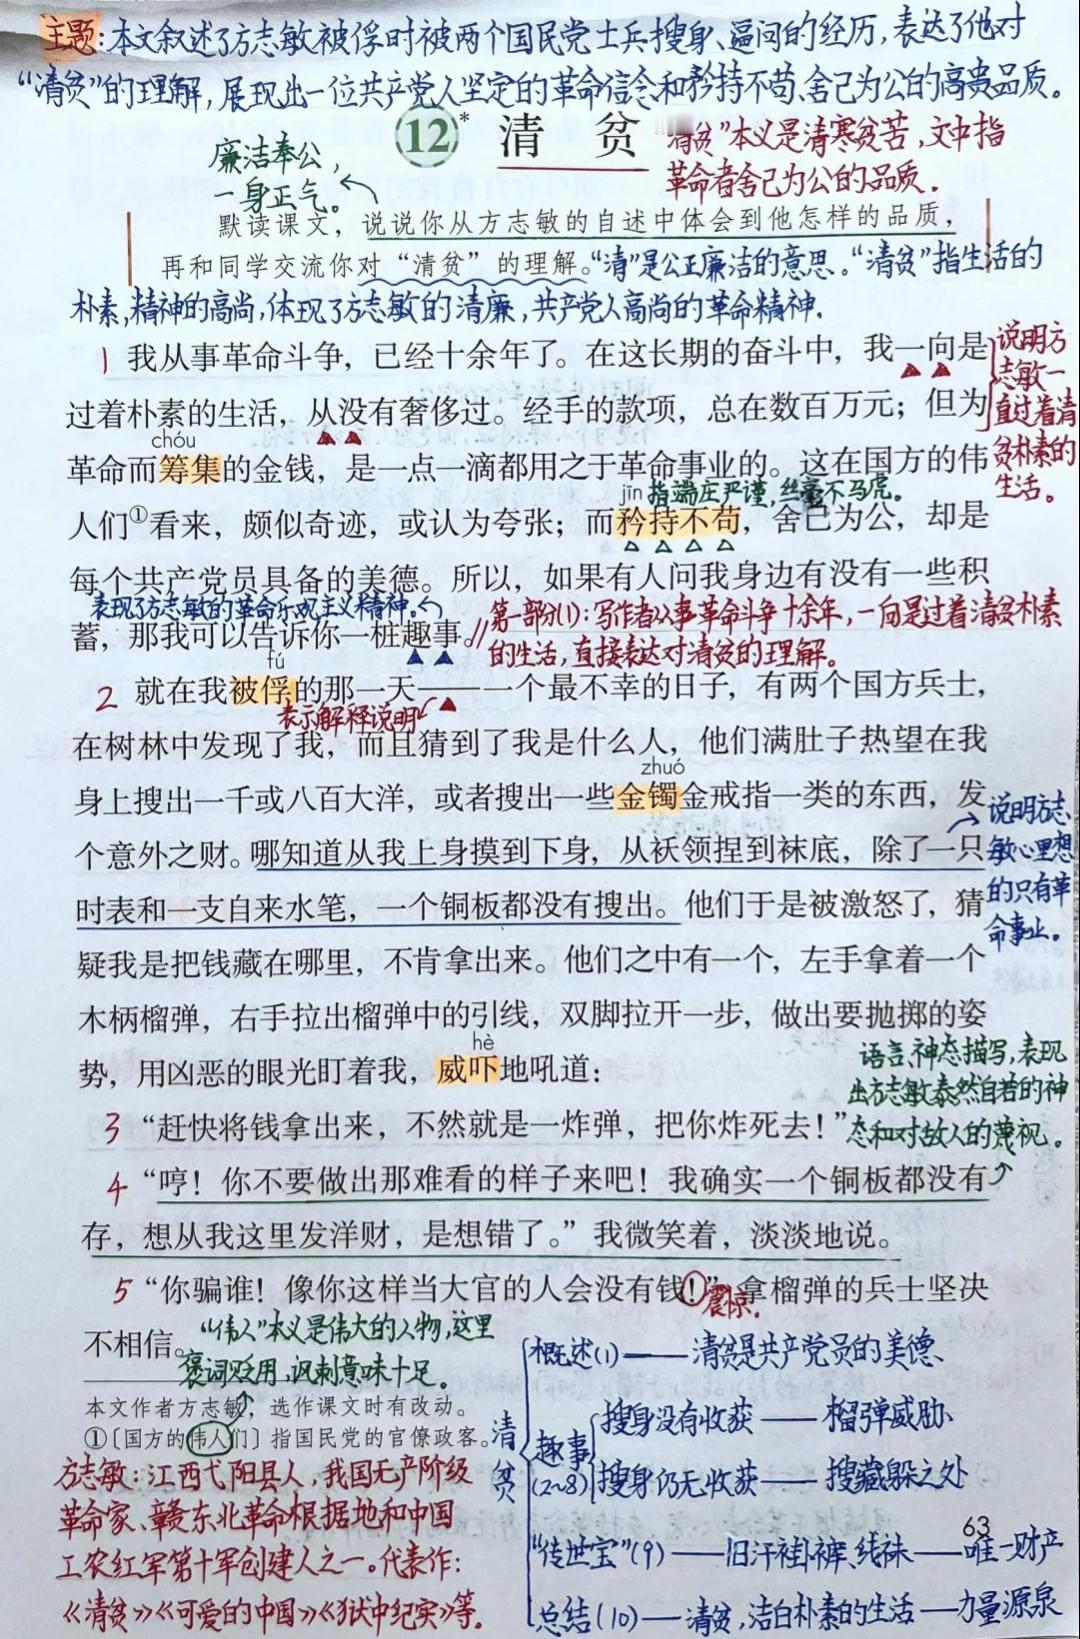 主题:本文叙述了方志敏被俘时被两个国民党士兵搜身、逼问的经历,表达了他对
“清贫”的理解,展现出一位共产党人坚定的革命信念和矜持不苟、舍己为公的高贵品质。
12* 清 贫
“清贫”本义是清寒贫苦,文中指
革命者舍己为公的品质.
廉洁奉公,
一身正气。
默读课文,说说你从方志敏的自述中体会到他怎样的品质,
再和同学交流你对“清贫”的理解。“清”是公正廉洁的意思。“清贫”指生活的
朴素,精神的高尚,体现了方志敏的清廉,共产党人高尚的革命精神.
1 我从事革命斗争,已经十余年了。在这长期的奋斗中,我一向是
过着朴素的生活,从没有奢侈过。经手的款项,总在数百万元;但为
说明方
志敏一
直过着清
贫朴素的
生活。
chóu
革命而筹集的金钱,是一点一滴都用之于革命事业的。这在国方的伟
jīn 指端庄严谨,丝毫不马虎。
人们①看来,颇似奇迹,或认为夸张;而矜持不苟,舍己为公,却是
每个共产党员具备的美德。所以,如果有人问我身边有没有一些积
表现了方志敏的革命乐观主义精神。
蓄,那我可以告诉你一桩趣事。
第一部分(1):写作者从事革命斗争十余年,一向是过着清贫朴素
的生活,直接表达对清贫的理解。
fú
2 就在我被俘的那一天——一个最不幸的日子,有两个国方兵士,
表示解释说明
在树林中发现了我,而且猜到了我是什么人,他们满肚子热望在我
zhuó
身上搜出一千或八百大洋,或者搜出一些金镯金戒指一类的东西,发
个意外之财。哪知道从我上身摸到下身,从袄领捏到袜底,除了一只
时表和一支自来水笔,一个铜板都没有搜出。他们于是被激怒了,猜
说明方志
敏心里想
的只有革
命事业。
疑我是把钱藏在哪里,不肯拿出来。他们之中有一个,左手拿着一个
木柄榴弹,右手拉出榴弹中的引线,双脚拉开一步,做出要抛掷的姿
hè
势,用凶恶的眼光盯着我,威吓地吼道:
语言、神态描写,表现
出方志敏泰然自若的神
态和对敌人的蔑视。
3 “赶快将钱拿出来,不然就是一炸弹,把你炸死去!”
4 “哼!你不要做出那难看的样子来吧!我确实一个铜板都没有
存,想从我这里发洋财,是想错了。”我微笑着,淡淡地说。
5 “你骗谁!像你这样当大官的人会没有钱!”拿榴弹的兵士坚决
震惊.
不相信。
“伟人”本义是伟大的人物,这里
褒词贬用,讽刺意味十足。
本文作者方志敏,选作课文时有改动。
①〔国方的伟人们〕指国民党的官僚政客。
方志敏:江西弋阳县人,我国无产阶级
革命家、赣东北革命根据地和中国
工农红军第十军创建人之一。代表作:
《清贫》《可爱的中国》《狱中纪实》等.
清贫
概述(1)——清贫是共产党员的美德、
趣事(2~8)
搜身没有收获——榴弹威胁、
搜身仍无收获——搜藏躲之处
“传世宝”(9)——旧汗褂裤、线袜——唯一财产
总结(10)——清贫,洁白朴素的生活——力量源泉
63